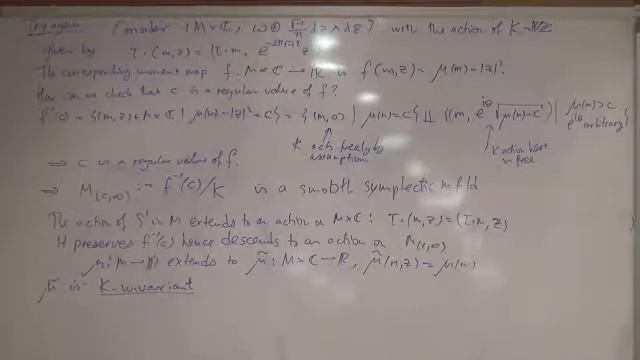 Try again Consider (M×ℂ, ω⊕ √-1/π dz∧dz̄) with the action of K=ℝ/ℤ
given by τ·(m,z) = (τ·m, e^{-2π√-1τ} z)
The corresponding moment map f: M×ℂ → ℝ is f(m,z) = μ(m) - |z|².
How can we check that c is a regular value of f?
f⁻¹(c) = {(m,z)∈M×ℂ | μ(m)-|z|²=c} = {(m,0) | μ(m)=c} ⊔ {(m, e^{iθ}√(μ(m)-c)) | μ(m)>c e^{iθ} arbitrary}
K acts freely by assumption
K action here is free
⇒ c is a regular value of f.
⇒ M_{[c,∞)} := f⁻¹(c)/K is a smooth symplectic mfld
The action of S¹ on M extends to an action on M×ℂ: τ·(m,z)=(τ·m,z)
It preserves f⁻¹(c) hence descends to an action on M_{[c,∞)}
μ: M→ℝ extends to μ̃: M×ℂ→ℝ, μ̃(m,z)=μ(m)
μ̃ is K-invariant